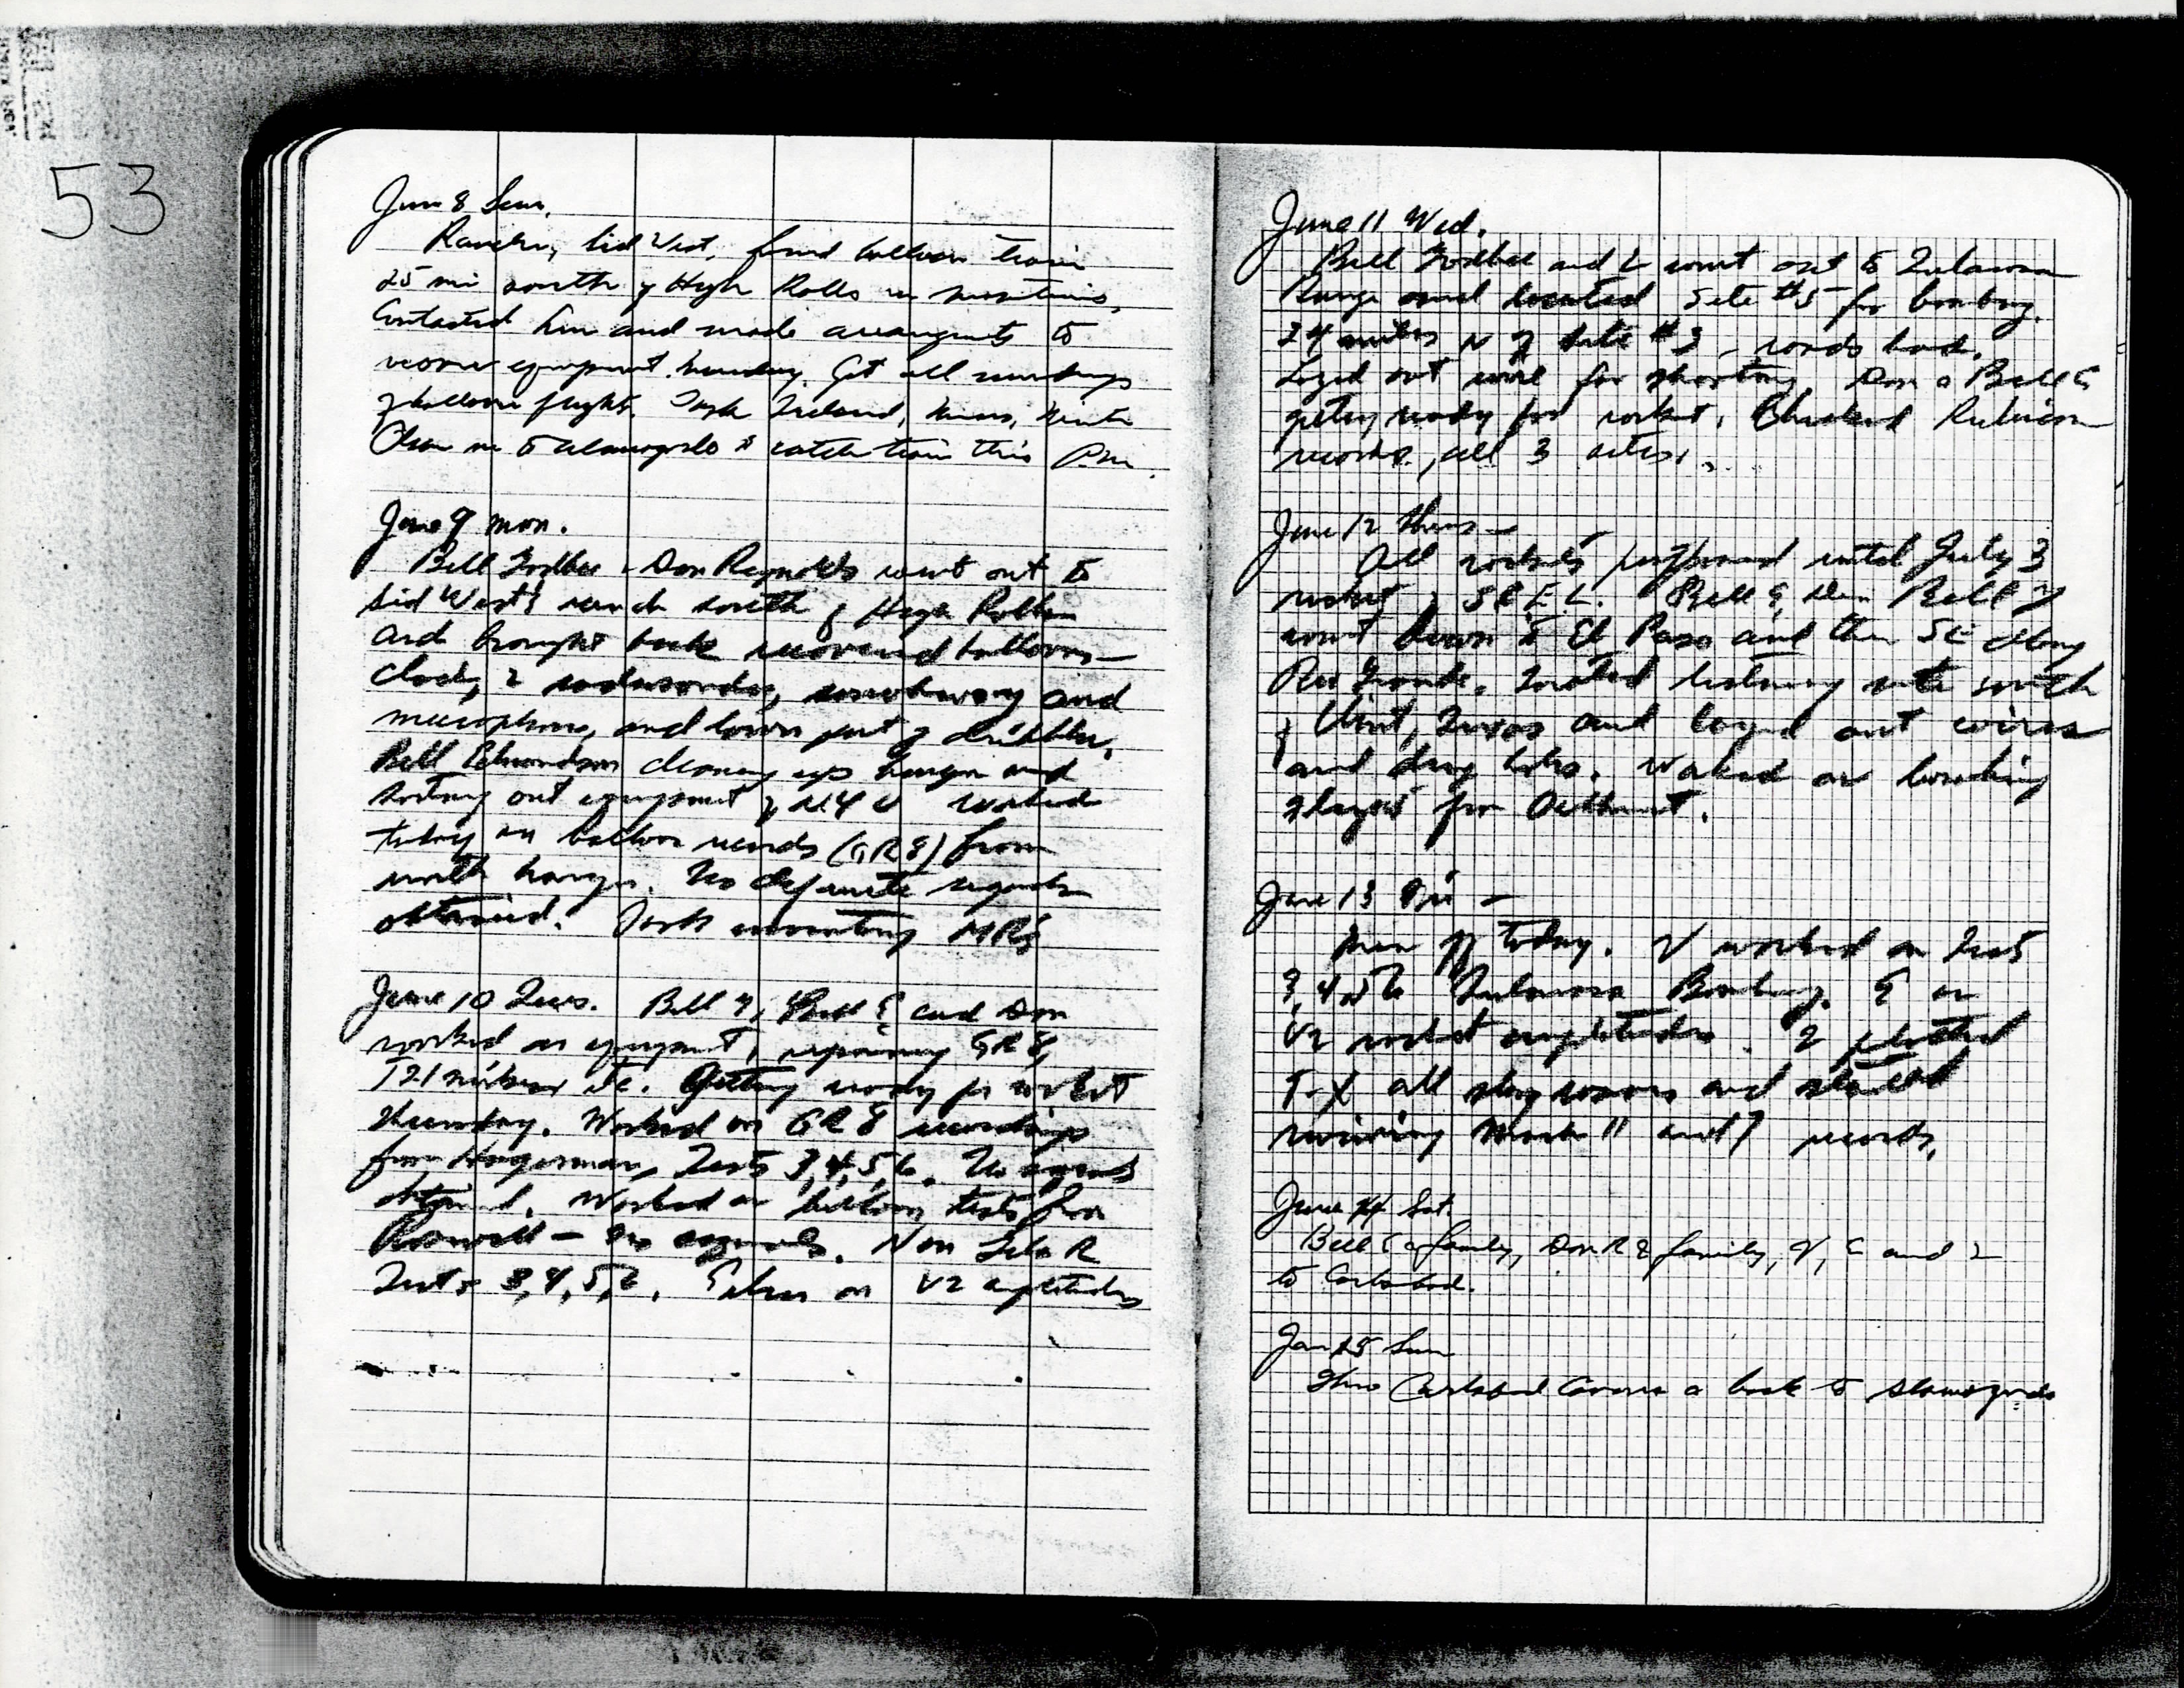 53
June 8 Sun.
Rancher, Sid West, found balloon train
25 mi south of High Rolls in mountains.
Contacted him and made arrangements to
recover equipment Monday. Got all recordings
of balloon flights.
to Alamogordo to catch train this P.M.
June 9 Mon.
Bill Godbee & Don Reynolds went out to
Sid West's ranch south of High Rolls
and brought back recovered balloons—
clock, 2 radiosondes, and
microphone, and lower part of dribbler.
Bill Edmondson cleaning up hangar and
sorting out equipment of N.Y.U. Worked
today on balloon records (GR8) from
north hangar. No definite signals
obtained.
June 10 Tues. Bill G, Bill E and Don
worked on equipment, repairing GR8,
T21 mikes, etc. Getting ready for rocket
Thursday. Worked on GR8 recordings
from Hagerman, Tests 3,4,5,6. No signals
obtained. Worked on balloon tests from
Roswell — no signals.
Tests 3,4,5,6. on V2 amplitudes
June 11 Wed.
Bill Godbee and I went out to Tularosa
Range and located Site #5 for bombing.
24 miles N of Site #3, roads bad.
Layed out wire for shooting. Don & Bill E
getting ready for rocket. Checked
records, all 3 sites.
June 12 Thurs —
All rockets postponed until July 3
rocket, S.C.E.L. Bill E, Don, Bill G
went down to El Paso and then SE along
Rio Grande. Located listening site south
of Clint, Texas and layed out wires
and dug holes. Worked on bombing
June 13 Fri —
Men off today. V worked on Tests
3,4 & 6 Tularosa Bombing. E on
V2 rocket amplitudes. I plotted
T-X all and started
reviewing March 11 and 7 records.
June 14 Sat.
Bill E & family, Don R & family, V, E and I
to Carlsbad.
Jun 15 Sun
Thru Carlsbad Caverns & back to Alamogordo